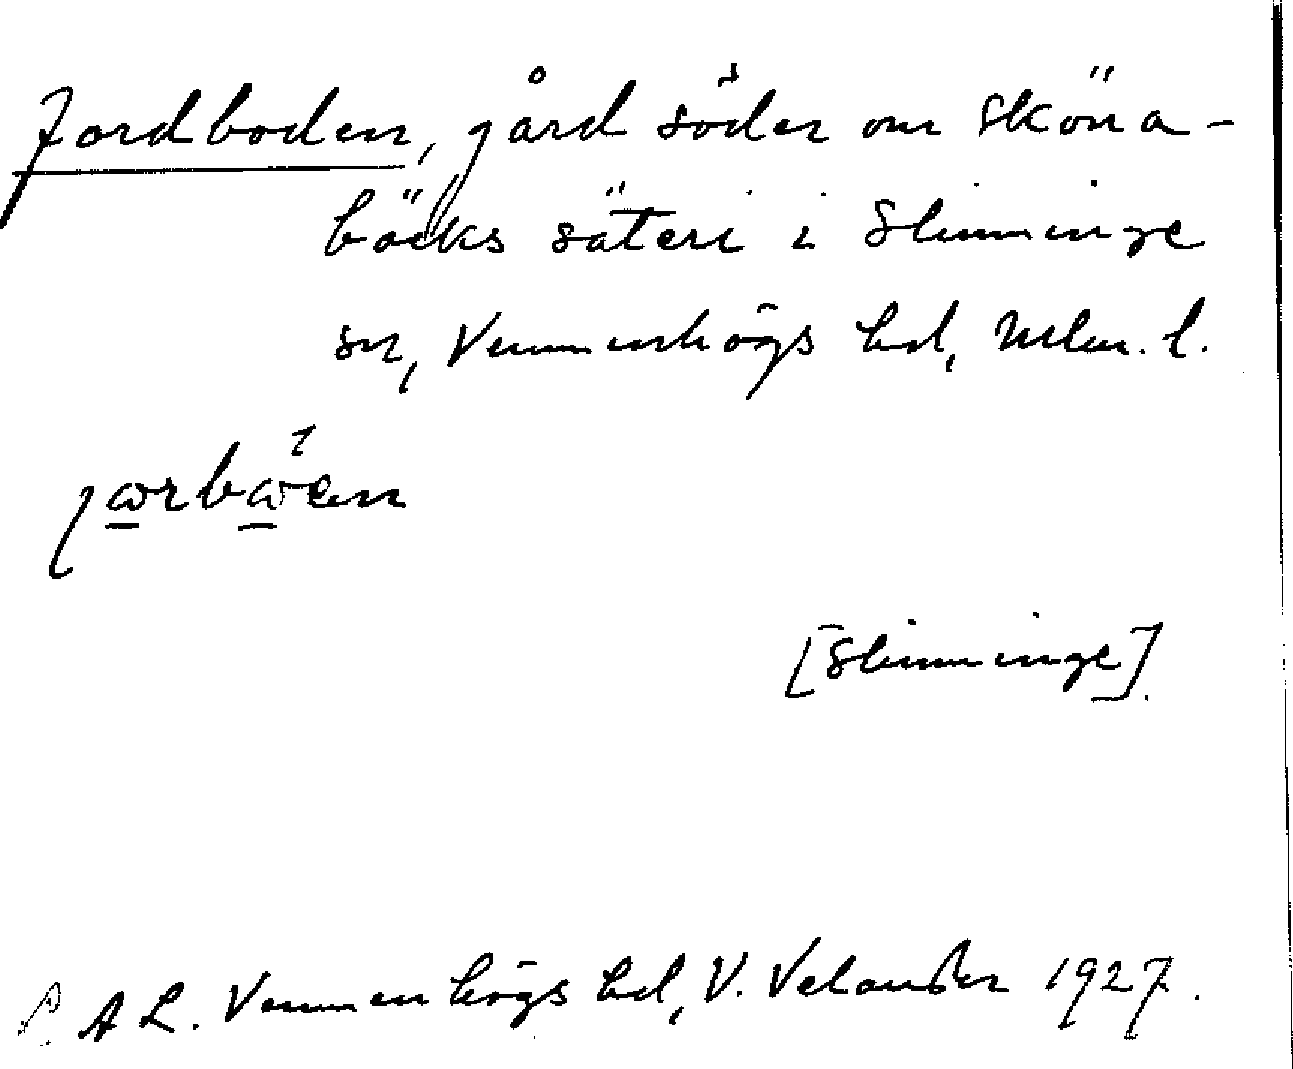 Jordboden, gård söder om Sköna-
bäcks säteri i Slimminge
sn, Vemmenhögs hd, Mlm. l.
[Slimminge].
A L. Vemmenhögs hd, V. Velander 1927.